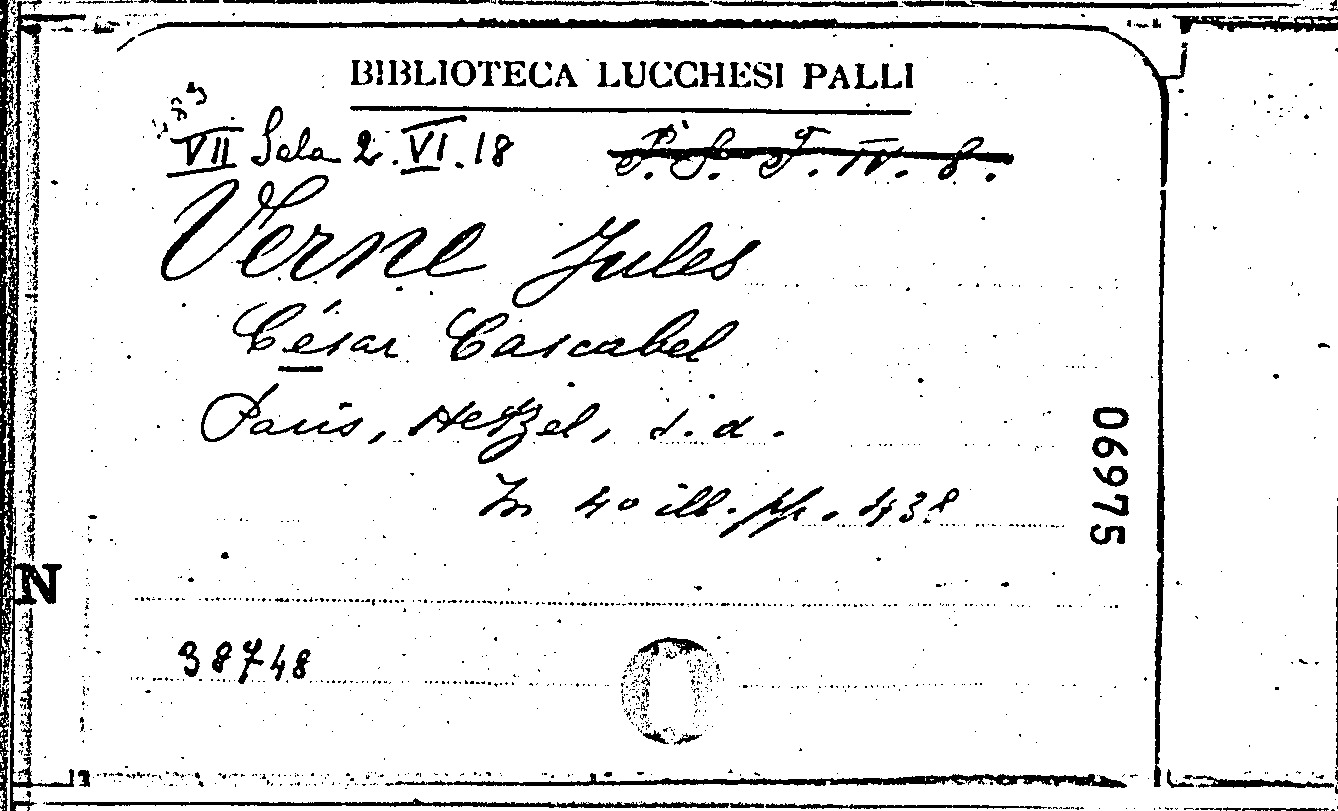 BIBLIOTECA LUCCHESI PALLI
VII Sala 2. VI. 18
P. S. F. IV. 8.
Verne Jules
César Cascabel
Paris, Hetzel, s.d.
In 4o ill. pp. 438
06975
N
38748